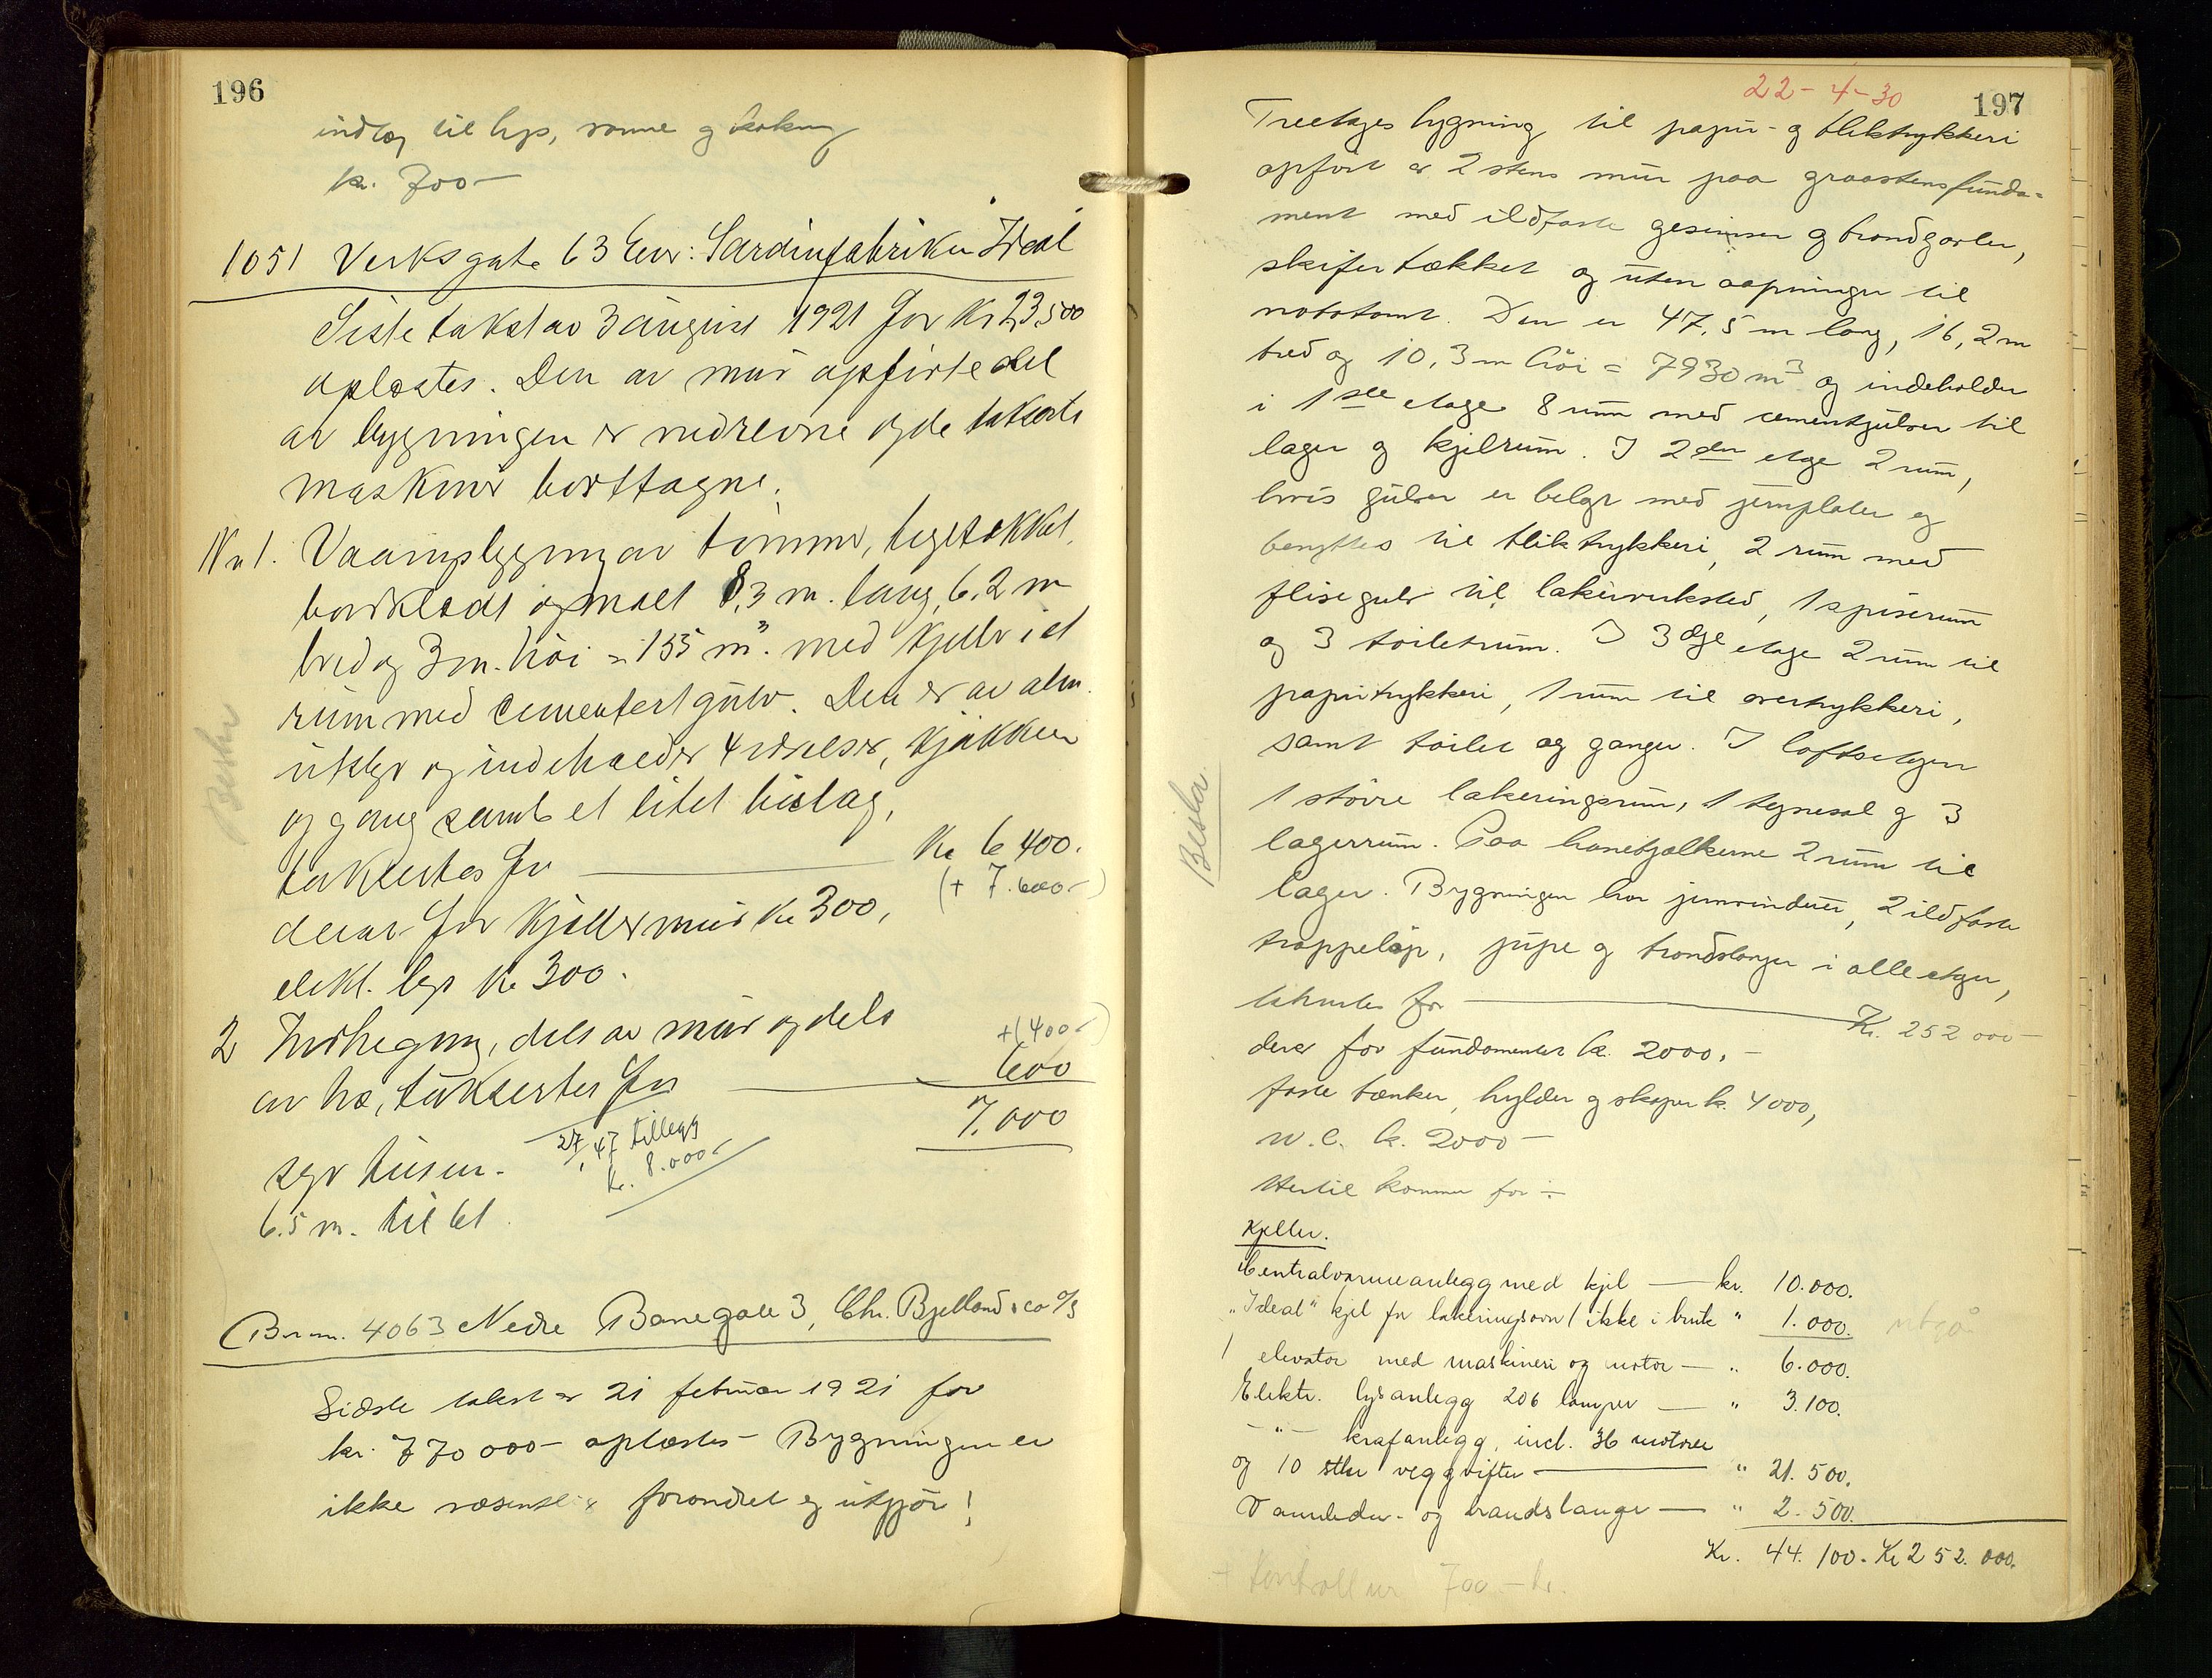 196
indlæg til lys, varme og kokning
kr. 700-
1051 Verksgate 63 Eier: Sardinfabriken Ideal
Siste takst av 3 august 1921 for Kr 23,500
oplæstes. Den av mur opførte del
av bygningen er nedrevne og de takserte
maskiner borttagne.
Nr 1. Vaaningsbygning av tømmer, teglstækket,
bordklædt og malt 8,3 m. lang, 6,2 m
bred og 3 m. høi = 155 m³. med kjeller i et
rum med cementert gulv. Den er av alm.
utstyr og indeholder 4 værelser, kjøkken
og gang samt et litet bislag,
takseres for Kr 6 400.
(+ 7.600-)
derav for kjellermur Kr 300,
elekt. lys Kr 300.
2 Indhegning, dels av mur og dels
+(400-)
av træ, takseres for 600
7.000
27/1 47 tillegg
kr. 8.000-
syv husen.
6.5 m. til 61
Beskr
Br.nr. 4063 Nedre Banegate 3, Chr. Bjelland & Co A/S
Sidste takst av 21 februar 1921 for
kr. 770 000- oplæstes- Bygningen er
ikke væsentlig forandret og utgjør!
22-4-30
197
Treetages bygning til papir- og bliktrykkeri
opført av 2 stens mur paa graastensfunda-
ment med ildfaste gesimser og brandgavler,
skifertækket og uten aapninger til
nabotomt. Den er 47,5 m lang, 16,2 m
bred og 10,3 m høi = 7930 m³ og indeholder
i 1ste etage 8 rum med cementgulver til
lager og kjelrum. I 2den etage 2 rum,
hvis gulver er belagt med jernplater og
benyttes til bliktrykkeri, 2 rum med
flisegulv til lakerverksted, 1 spiserum
og 3 toiletrum. I 3dje etage 2 rum til
papirtrykkeri, 1 rum til overtrykkeri,
samt toilet og ganger. I loftsetagen
1 større lakeringsrum, 1 tegnesal og 3
lagerrum. Paa hanebjælkerne 2 rum til
lager. Bygningen har jernvinduer, 2 ildfaste
trappeløp, jupe og brandslanger i alle etager,
takseres for Kr. 252 000-
derav for fundamenter kr. 2000.-
faste bænker, hylder og skaper kr. 4000,
W.C. kr. 2000-
Hertil kommer for:-
Beskr.
Kjeller.
Centralvarmeanlegg med kjel — kr. 10.000.
"Ideal" kjel for lakeringsovn (ikke i bruk " 1.000. utgå
1 elevator med maskineri og motor — " 6.000.
Elektr. lysanlegg 206 lamper — " 3.100.
- " - krafanlegg, incl. 36 motorer
og 10 stkr veggvifter — " 21.500.
Vannleden- og brandslange — " 2.500.
Kr. 44.100. Kr 252.000.
+ kontrollur 700-kr.